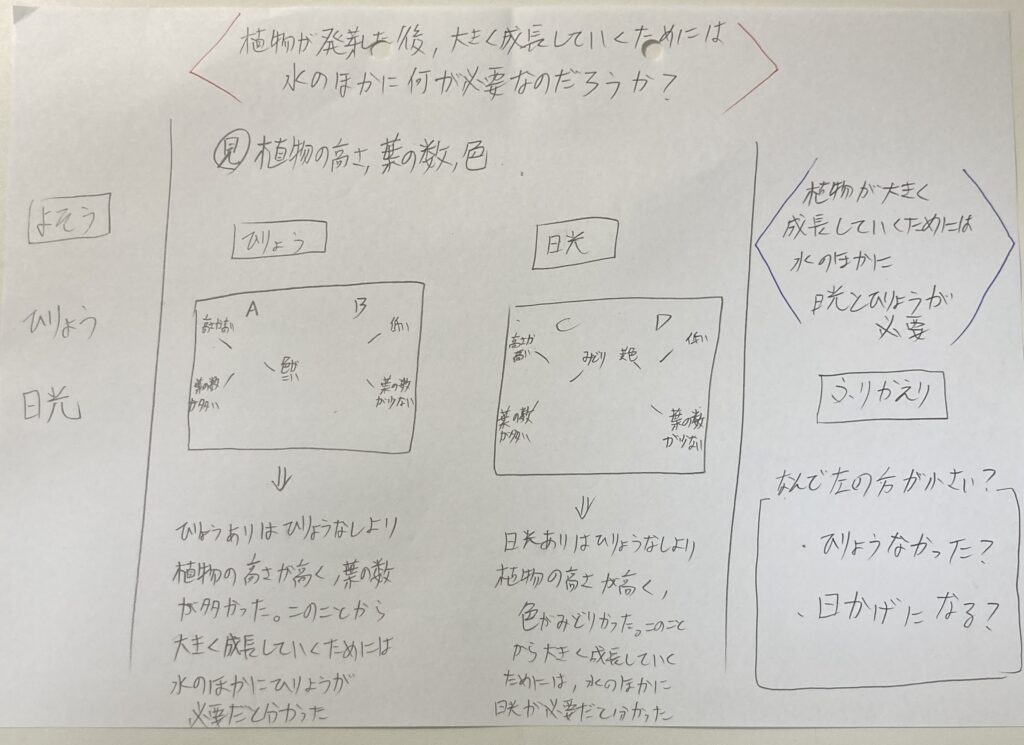 植物が発芽した後，大きく成長していくためには
水のほかに何が必要なのだろうか？
見 植物の高さ，葉の数，色
よそう
ひりょう
日光
ひりょう
A B
高さが高い
低い
色が
こい
葉の数
が多い
葉の数
が少ない
ひりょうありはひりょうなしより
植物の高さが高く，葉の数
が多かった。このことから
大きく成長していくためには
水のほかにひりょうが
必要だと分かった
日光
C D
高さが
高い
みどり
黄色
低い
葉の数
が多い
葉の数
が少ない
日光ありはひりょうなしより
植物の高さが高く，
色がみどりかった。このこと
から大きく成長していく
ためには，水のほかに
日光が必要だと分かった
植物が大きく
成長していくためには
水のほかに
日光とひりょうが
必要
ふりかえり
なんで左の方が小さい？
・ひりょうなかった？
・日かげになる？